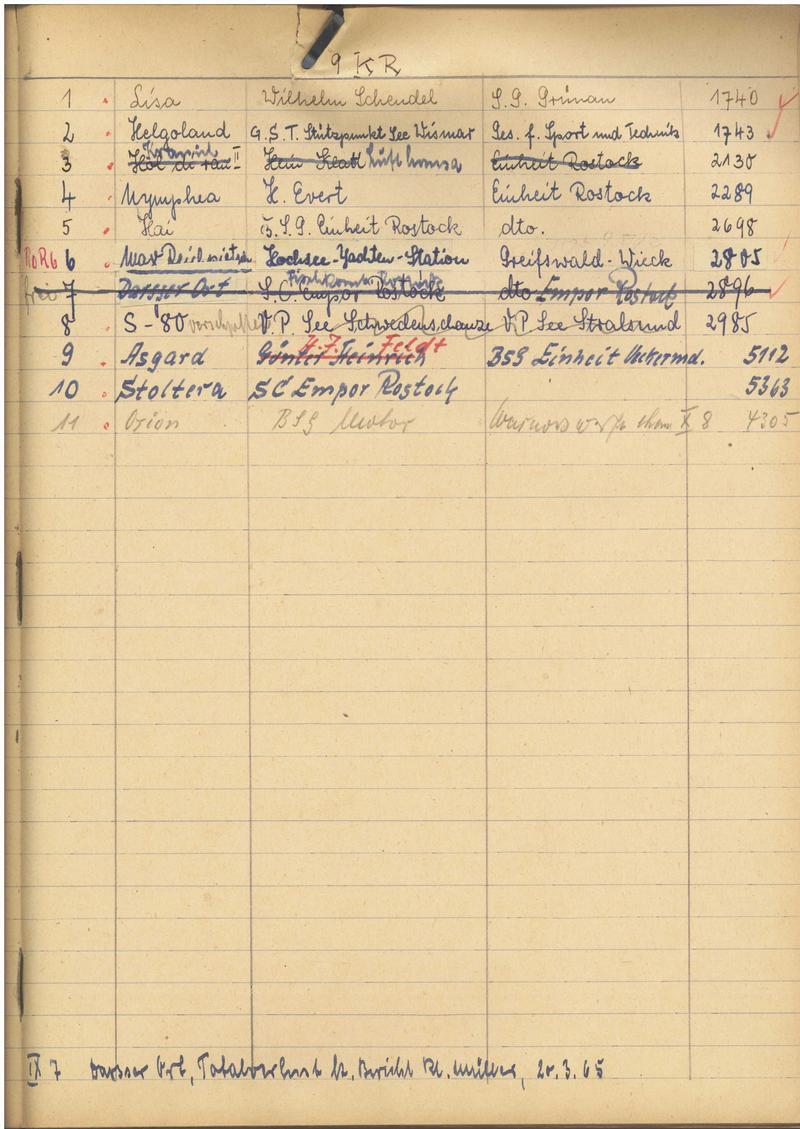 9 KR
1 Lisa Wilhelm Schendel S.G. Grünau 1740
2 Helgoland G.S.T. Stützpunkt See Wismar Ges. f. Sport und Technik 1743
Kranich
3 Hol di ran II Hein Klatt Lufthansa Einheit Rostock 2130
4 Nymphea H. Evert Einheit Rostock 2289
5 Hai B.S.G. Einheit Rostock dto. 2698
RoR6 6 Max Reichpietsch Hochsee-Yachten-Station Greifswald-Wieck 2805
frei 7 Darsser Ort S.C. Empor Rostock dto Empor Rostock 2896
8 S-'80 verschollen V.P. See Schwedenschanze V.P See Stralsund 2985
H.J. Feldt
9 Asgard Günter Heinrich BSG Einheit Uekermd. 5112
10 Stoltera SC Empor Rostock 5363
11 Orion BSG Motor Warnowwerft X 8 4305
IX 7 Darsser Ort, Totalverlust lt. Bericht Kl. Müller, 20.3.65